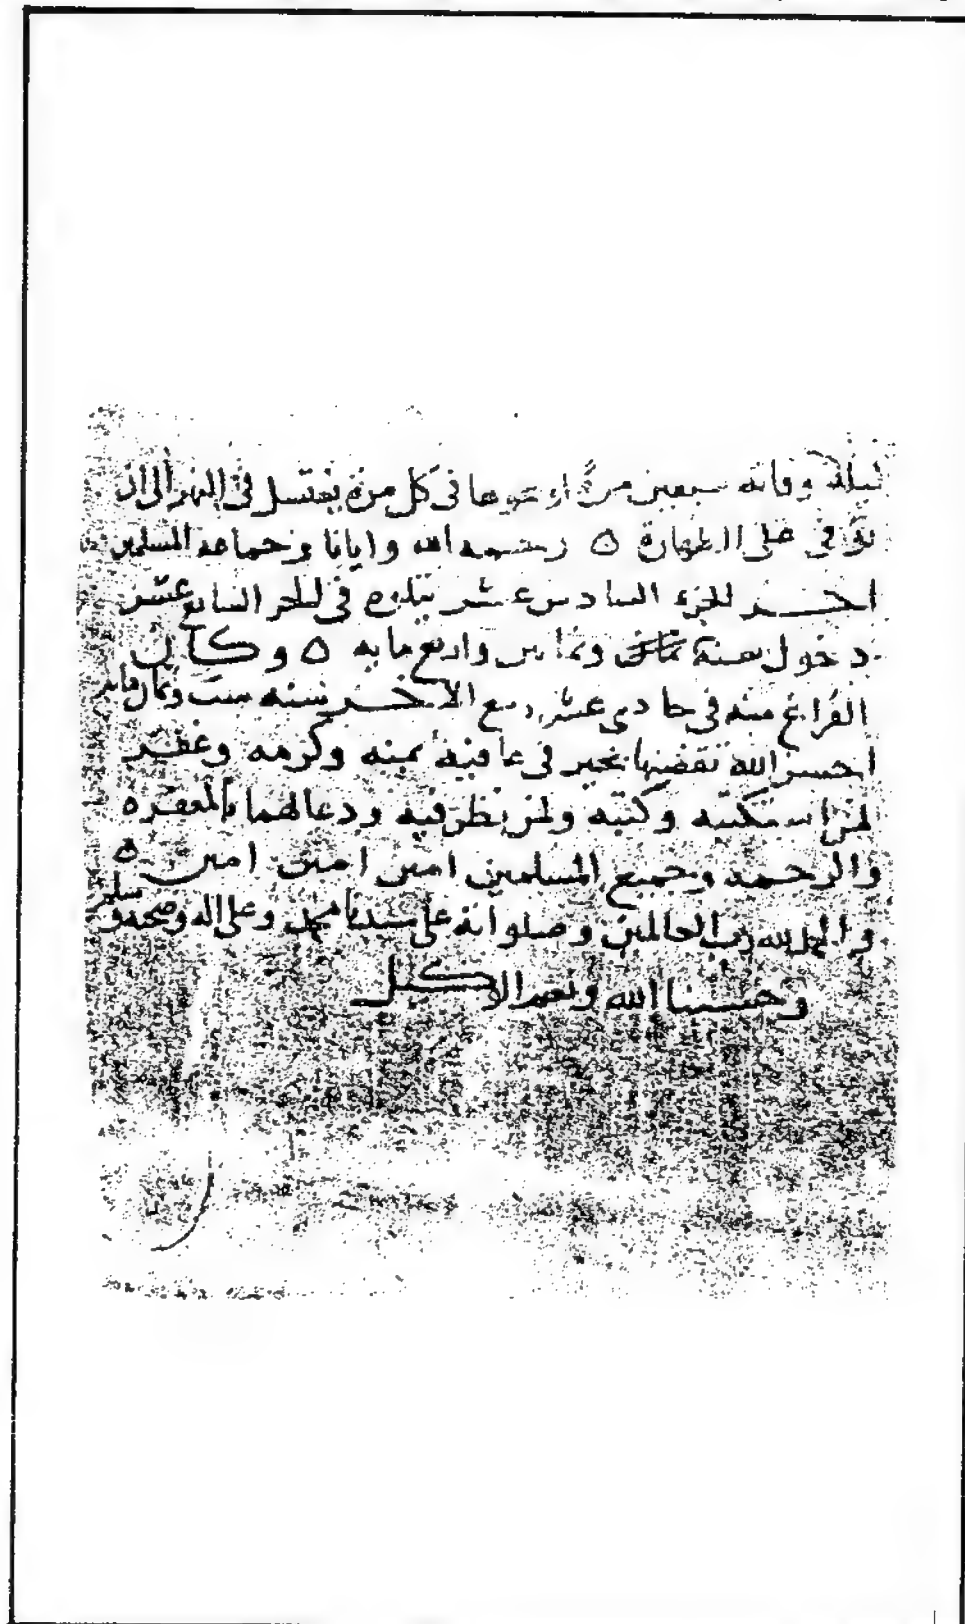 ليلة وفاته سبعين مرة او نحوها في كل مرة يغتسل في النهر الى ان
توفي على الطهارة ه رحمه الله وايانا وجماعة المسلمين
اخر الجزء السادس عشر يتلوه في الجزء السابع عشر
دخول سنة وثمانين واربع مايه ه وكان
الفراغ منه في حادي عشر ربيع الاخر سنه ست وثمان مايه
احسن الله تقضيها بخير في عافية بمنه وكرمه وغفر
لمن استكتبه وكتبه ولمن نظر فيه ودعا لهما بالمغفره
والرحمه وجميع المسلمين امين امين امين ه
والحمد لله رب العالمين وصلواته على سيدنا محمد وعلى اله وصحبه وسلم
وحسبنا الله ونعم الوكيل